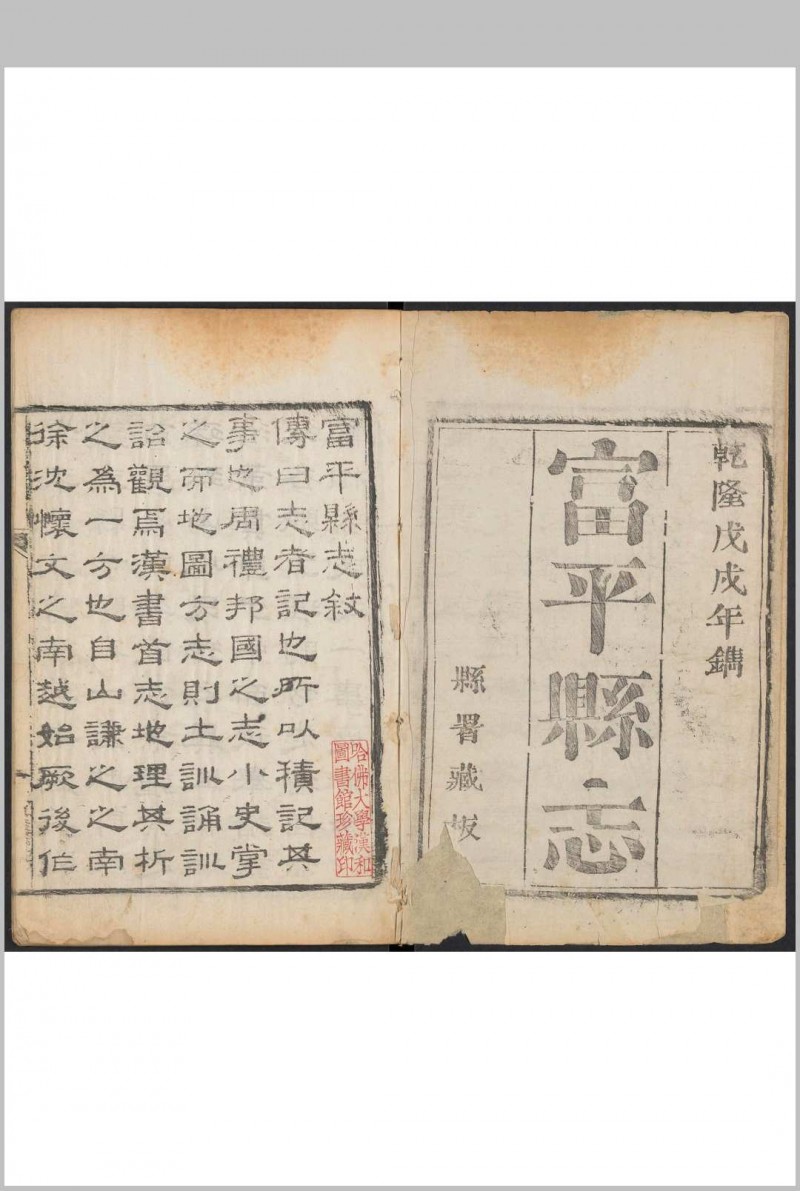 乾隆戊戌年鐫
富平縣志
縣署藏板
富平縣志敘
傳曰志者記也所以積記其
事也周禮邦國之志小史掌
之而地圖方志則土訓誦訓
詔觀焉漢書首志地理其析
之為一方也自山謙之之南
徐沈懷文之南越始厥後作
哈佛大學漢和
圖書館珍藏印